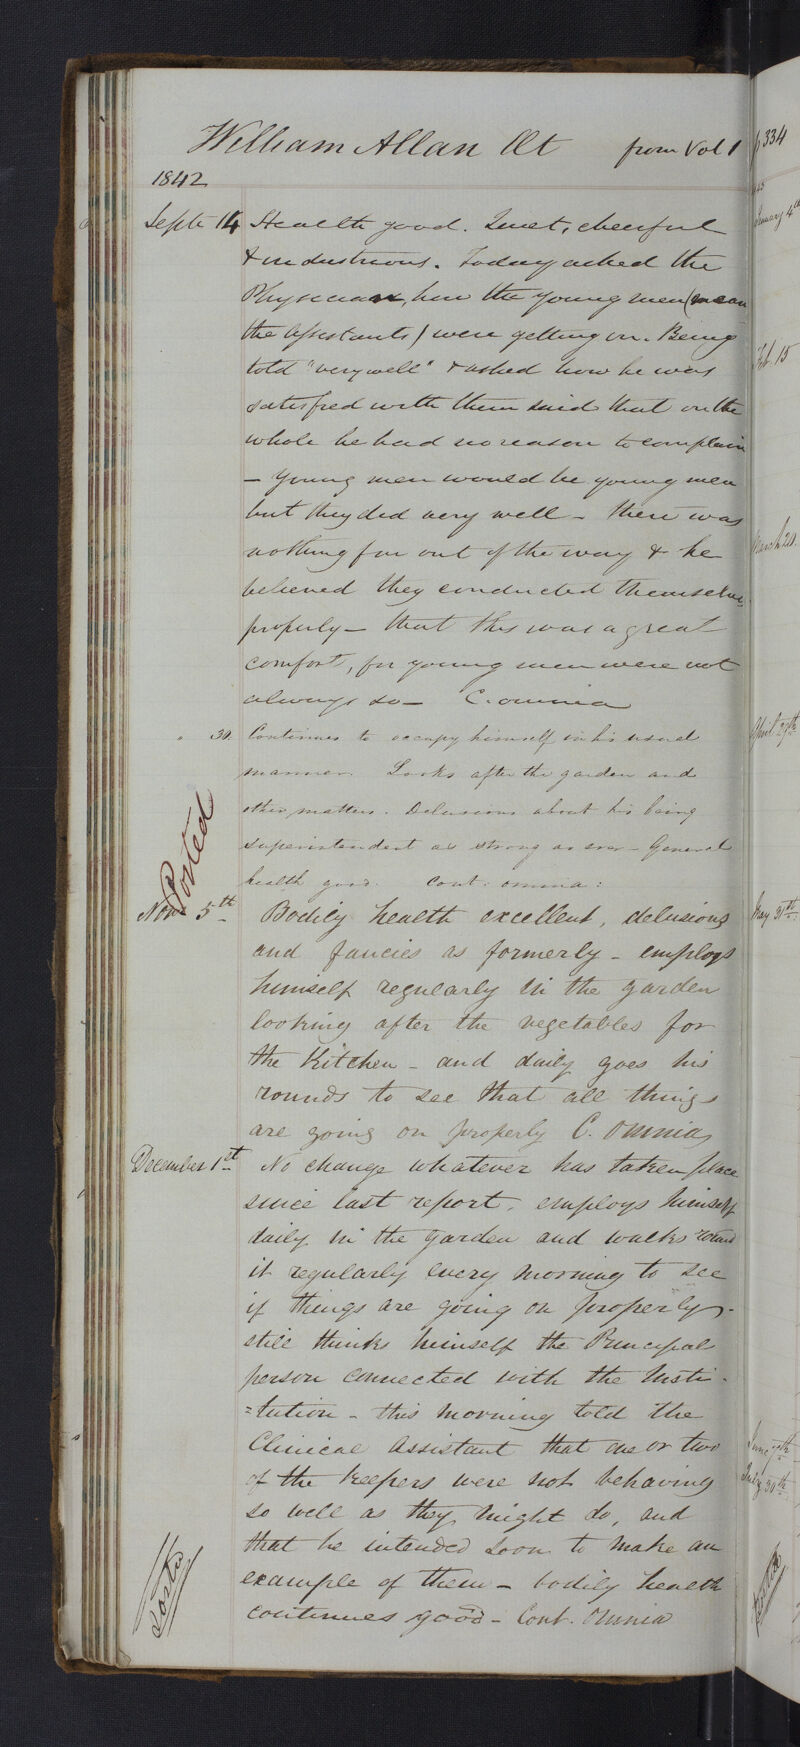 William Allan Æt from Vol 1 p 334
1842
Septr 14 Health good. Quiet, cheerful
& industrious. Today asked the
Physician, how the young men (mean
the Assistants) were getting on. Being
told "very well" & asked how he was
satisfied with them said that on the
whole he had no reason to complain
– Young men would be young men
but they did very well – there was
nothing far out of the way & he
believed they conducted themselves
properly – that this was a great
comfort, for young men were not
always so – C. omnia
" 30. Continues to occupy himself in his usual
manner. Looks after the garden and
other matters. Delusions about his being
superintendent as strong as ever – General
health good. Cont: omnia:
Posted
Novr 5th Bodily health excellent, delusions
and fancies as formerly – employs
himself regularly in the garden
looking after the vegetables for
the Kitchen – and daily goes his
rounds to see that all things
are going on properly C. Omnia
December 1st No change whatever has taken place
since last report, employs himself
daily in the garden and walks round
it regularly every morning to see
if things are going on properly –
still thinks himself the Principal
person connected with the Insti-
=tution – this morning told the
Clinical Assistant that one or two
of the keepers were not behaving
so well as they might do, and
that he intended soon to make an
example of them – bodily health
continues good – Cont. Omnia
January 4th
Feb. 15
March 20
April 29th
May 31st
June
July 30th